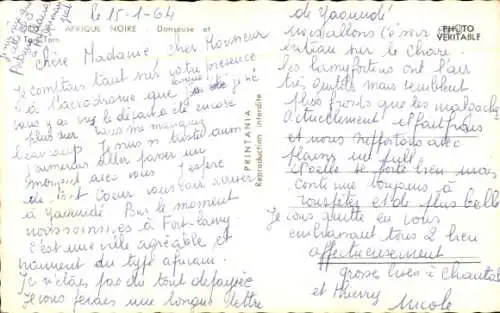 le 15.1.64
AFRIQUE NOIRE Danseuse et
Tam-Tam
Chère Madame cher Monsieur
Je comptais tant sur votre présence
à l'aérodrome que
vous y ai vus le départ a été encore
plus dur vous me manquez
beaucoup Je suis si triste
j'aimerais aller passer un
moment avec vous J'espère
de tout coeur vous voir
à Yaoundé Pour le moment
nous sommes à Fort-Lamy
c'est une ville agréable et
vraiment du type africain.
Je n'étais pas du tout dépaysée
Je vous ferais une longue lettre
PRINTANIA
Reproduction interdite
PHOTO
VERITABLE
de Yaoundé
nous allons
bateau sur le Chari
les camerounais ont l'air
très gentils mais semblent
plus frustes que les malgaches
Actuellement il fait frais
et nous supportons avec
plaisir un pull
Noelle se porte bien mais
continue toujours à
rouspéter et de plus belle
Je vous quitte en vous
embrassant tous 2 bien
affectueusement
grosses bises à Chantal
et Thierry
Nicole